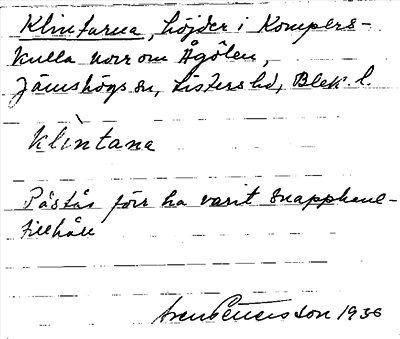 Klintarna, höjder i Kompers-
kulla norr om Ågölen,
Jämshögs sn, Listers hd, Blek. l.
klìntana
Påstås förr ha varit snapphane-
tillhåll
Sven Petersson 1936